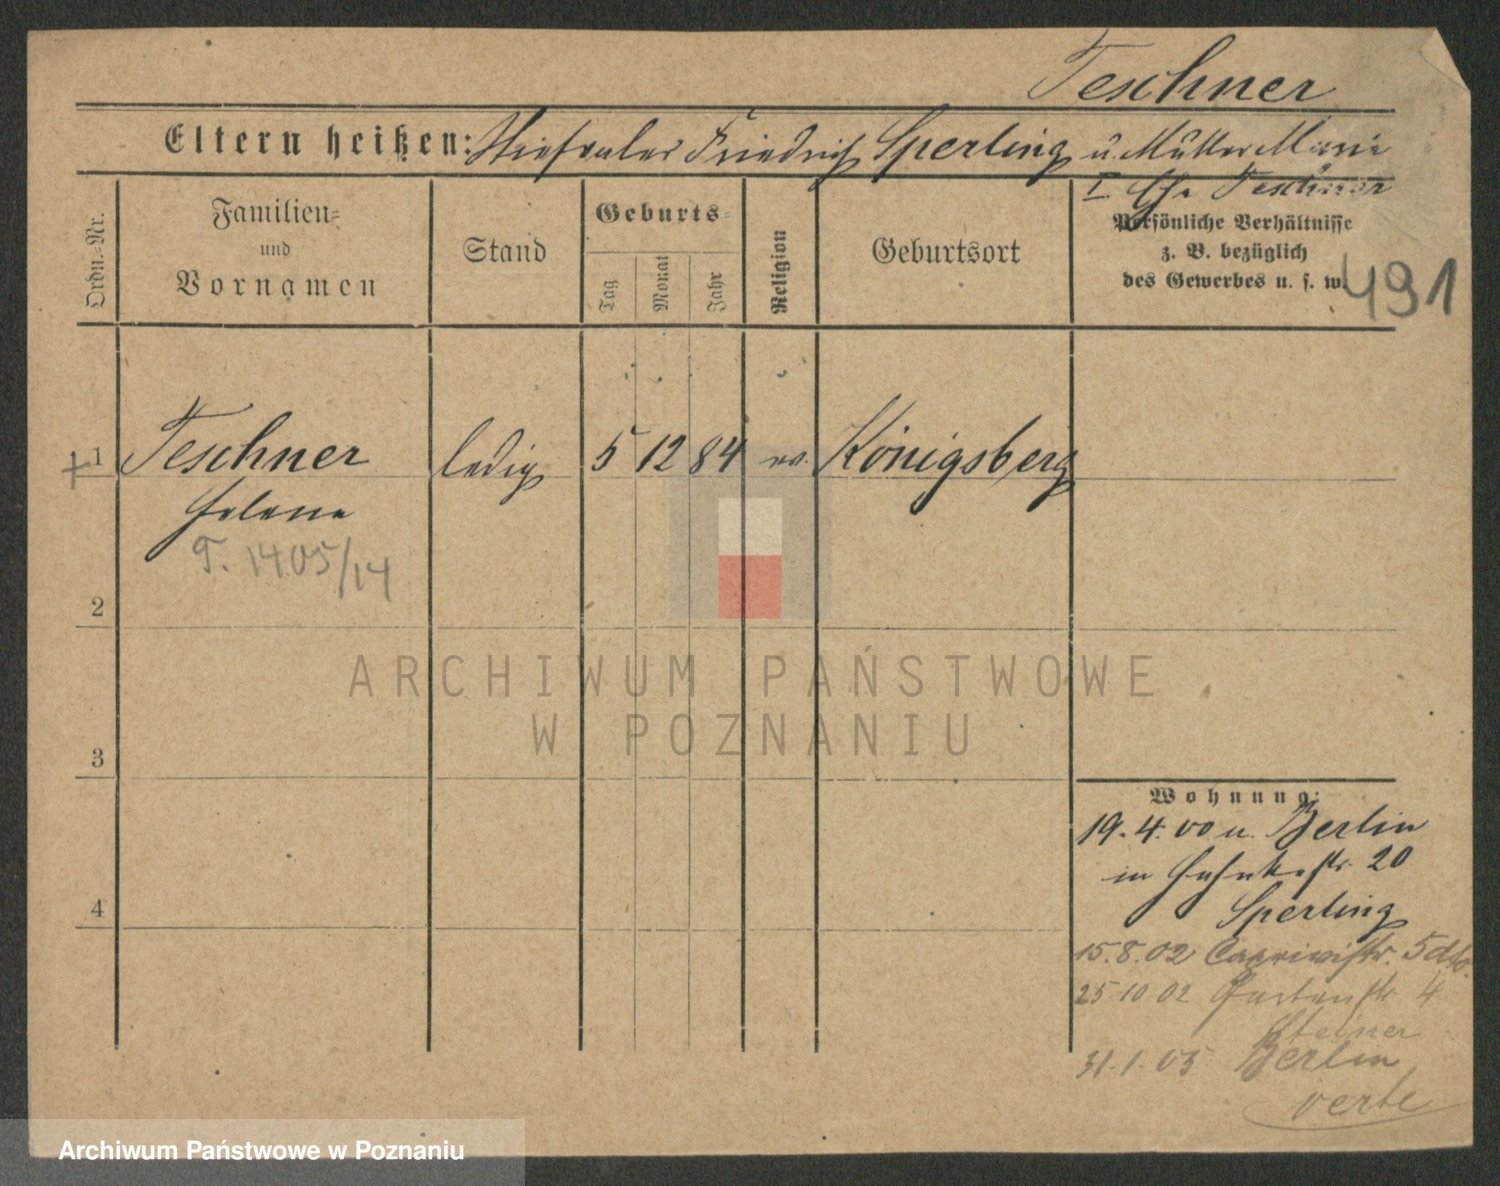 Teschner
Eltern heißen: Stiefvater Friedrich Sperling u. Mutter Marie
I. Ehe Teschner
Ordn.-Nr.
Familien-
und
Vornamen
Stand
Geburts-
Tag
Monat
Jahr
Religion
Geburtsort
Persönliche Verhältnisse
z. B. bezüglich
des Gewerbes u. s. w.
491
1 Teschner ledig 5 12 84 ev. Königsberg
Helene
T. 1405/14
2
3
4
ARCHIWUM PAŃSTWOWE
W POZNANIU
Wohnung:
19.4.00 u. Berlin
in Hahnkestr. 20
Sperling
15.8.02 Caprivistr. 5 dto.
25 10 02 Gartenstr 4
Steiner
31.1.05 Berlin
verte
Archiwum Państwowe w Poznaniu